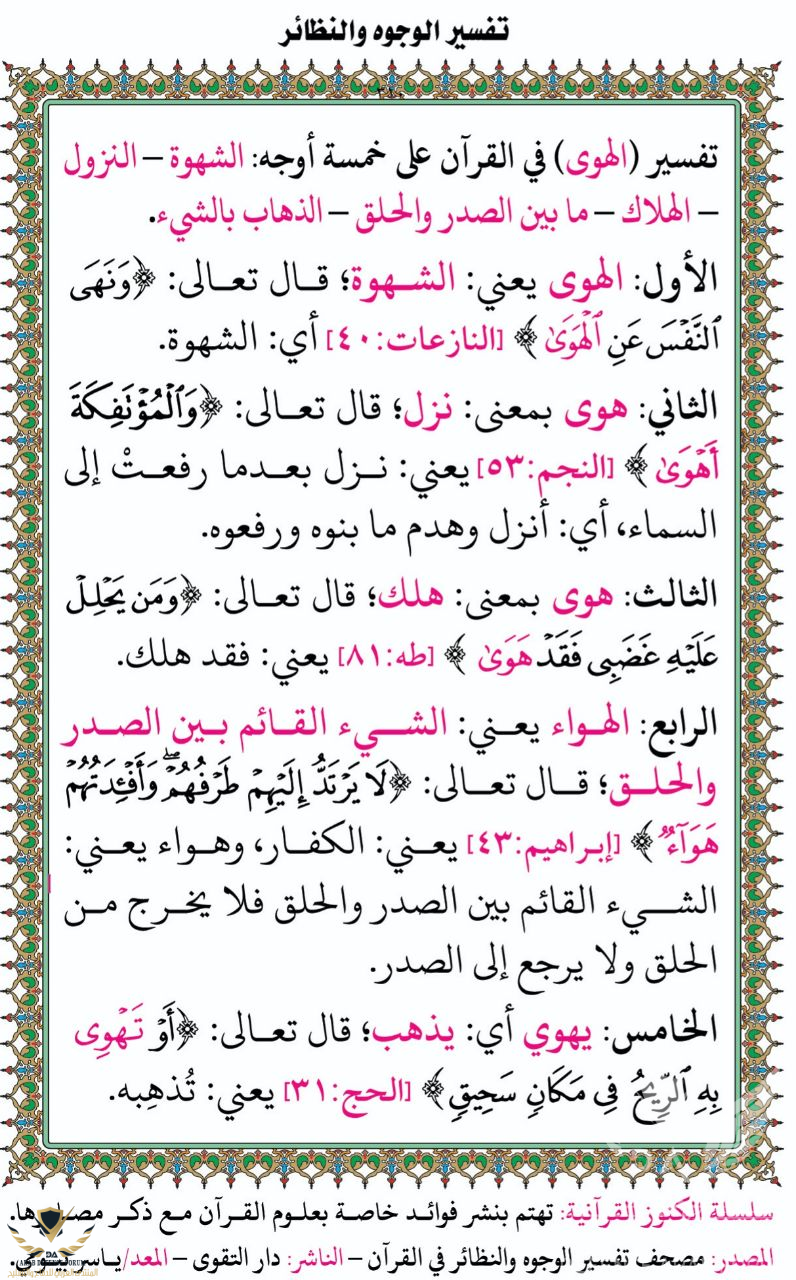 تفسير الوجوه والنظائر
تفسير (الهوى) في القرآن على خمسة أوجه: الشهوة – النزول
– الهلاك – ما بين الصدر والحلق – الذهاب بالشيء.
الأول: الهوى يعني: الشهوة؛ قال تعالى: ﴿وَنَهَى
ٱلنَّفۡسَ عَنِ ٱلۡهَوَىٰ ﴾ [النازعات:٤٠] أي: الشهوة.
الثاني: هوى بمعنى: نزل؛ قال تعالى: ﴿وَٱلۡمُؤۡتَفِكَةَ
أَهۡوَىٰ ﴾ [النجم:٥٣] يعني: نزل بعدما رفعتْ إلى
السماء، أي: أنزل وهدم ما بنوه ورفعوه.
الثالث: هوى بمعنى: هلك؛ قال تعالى: ﴿وَمَن يَحۡلِلۡ
عَلَيۡهِ غَضَبِى فَقَدۡ هَوَىٰ ﴾ [طه:٨١] يعني: فقد هلك.
الرابع: الهواء يعني: الشيء القائم بين الصدر
والحلق؛ قال تعالى: ﴿لَا يَرۡتَدُّ إِلَيۡهِمۡ طَرۡفُهُمۡۖ وَأَفۡـِٔدَتُهُمۡ
هَوَآءٞ ﴾ [إبراهيم:٤٣] يعني: الكفار، وهواء يعني:
الشيء القائم بين الصدر والحلق فلا يخرج من
الحلق ولا يرجع إلى الصدر.
الخامس: يهوي أي: يذهب؛ قال تعالى: ﴿أَوۡ تَهۡوِى
بِهِ ٱلرِّيحُ فِى مَكَانٖ سَحِيقٖ﴾ [الحج:٣١] يعني: تُذهِبه.
سلسلة الكنوز القرآنية: تهتم بنشر فوائد خاصة بعلوم القرآن مع ذكر مصادرها.
المصدر: مصحف تفسير الوجوه والنظائر في القرآن – الناشر: دار التقوى – المعد/ياسر بيومي.
DA
ARAB DEFENSE FORUM